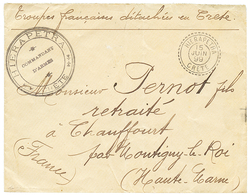 Troupes françaises détachées en Crète
HIERAPETRA
COMMANDANT
D'ARMES
HIERAPETRA
15
JUIN
99
CRETE
Monsieur Pernot fils
retraité
à Chauffourt
par Montigny-le-Roi
(France)
(Haute-Marne)